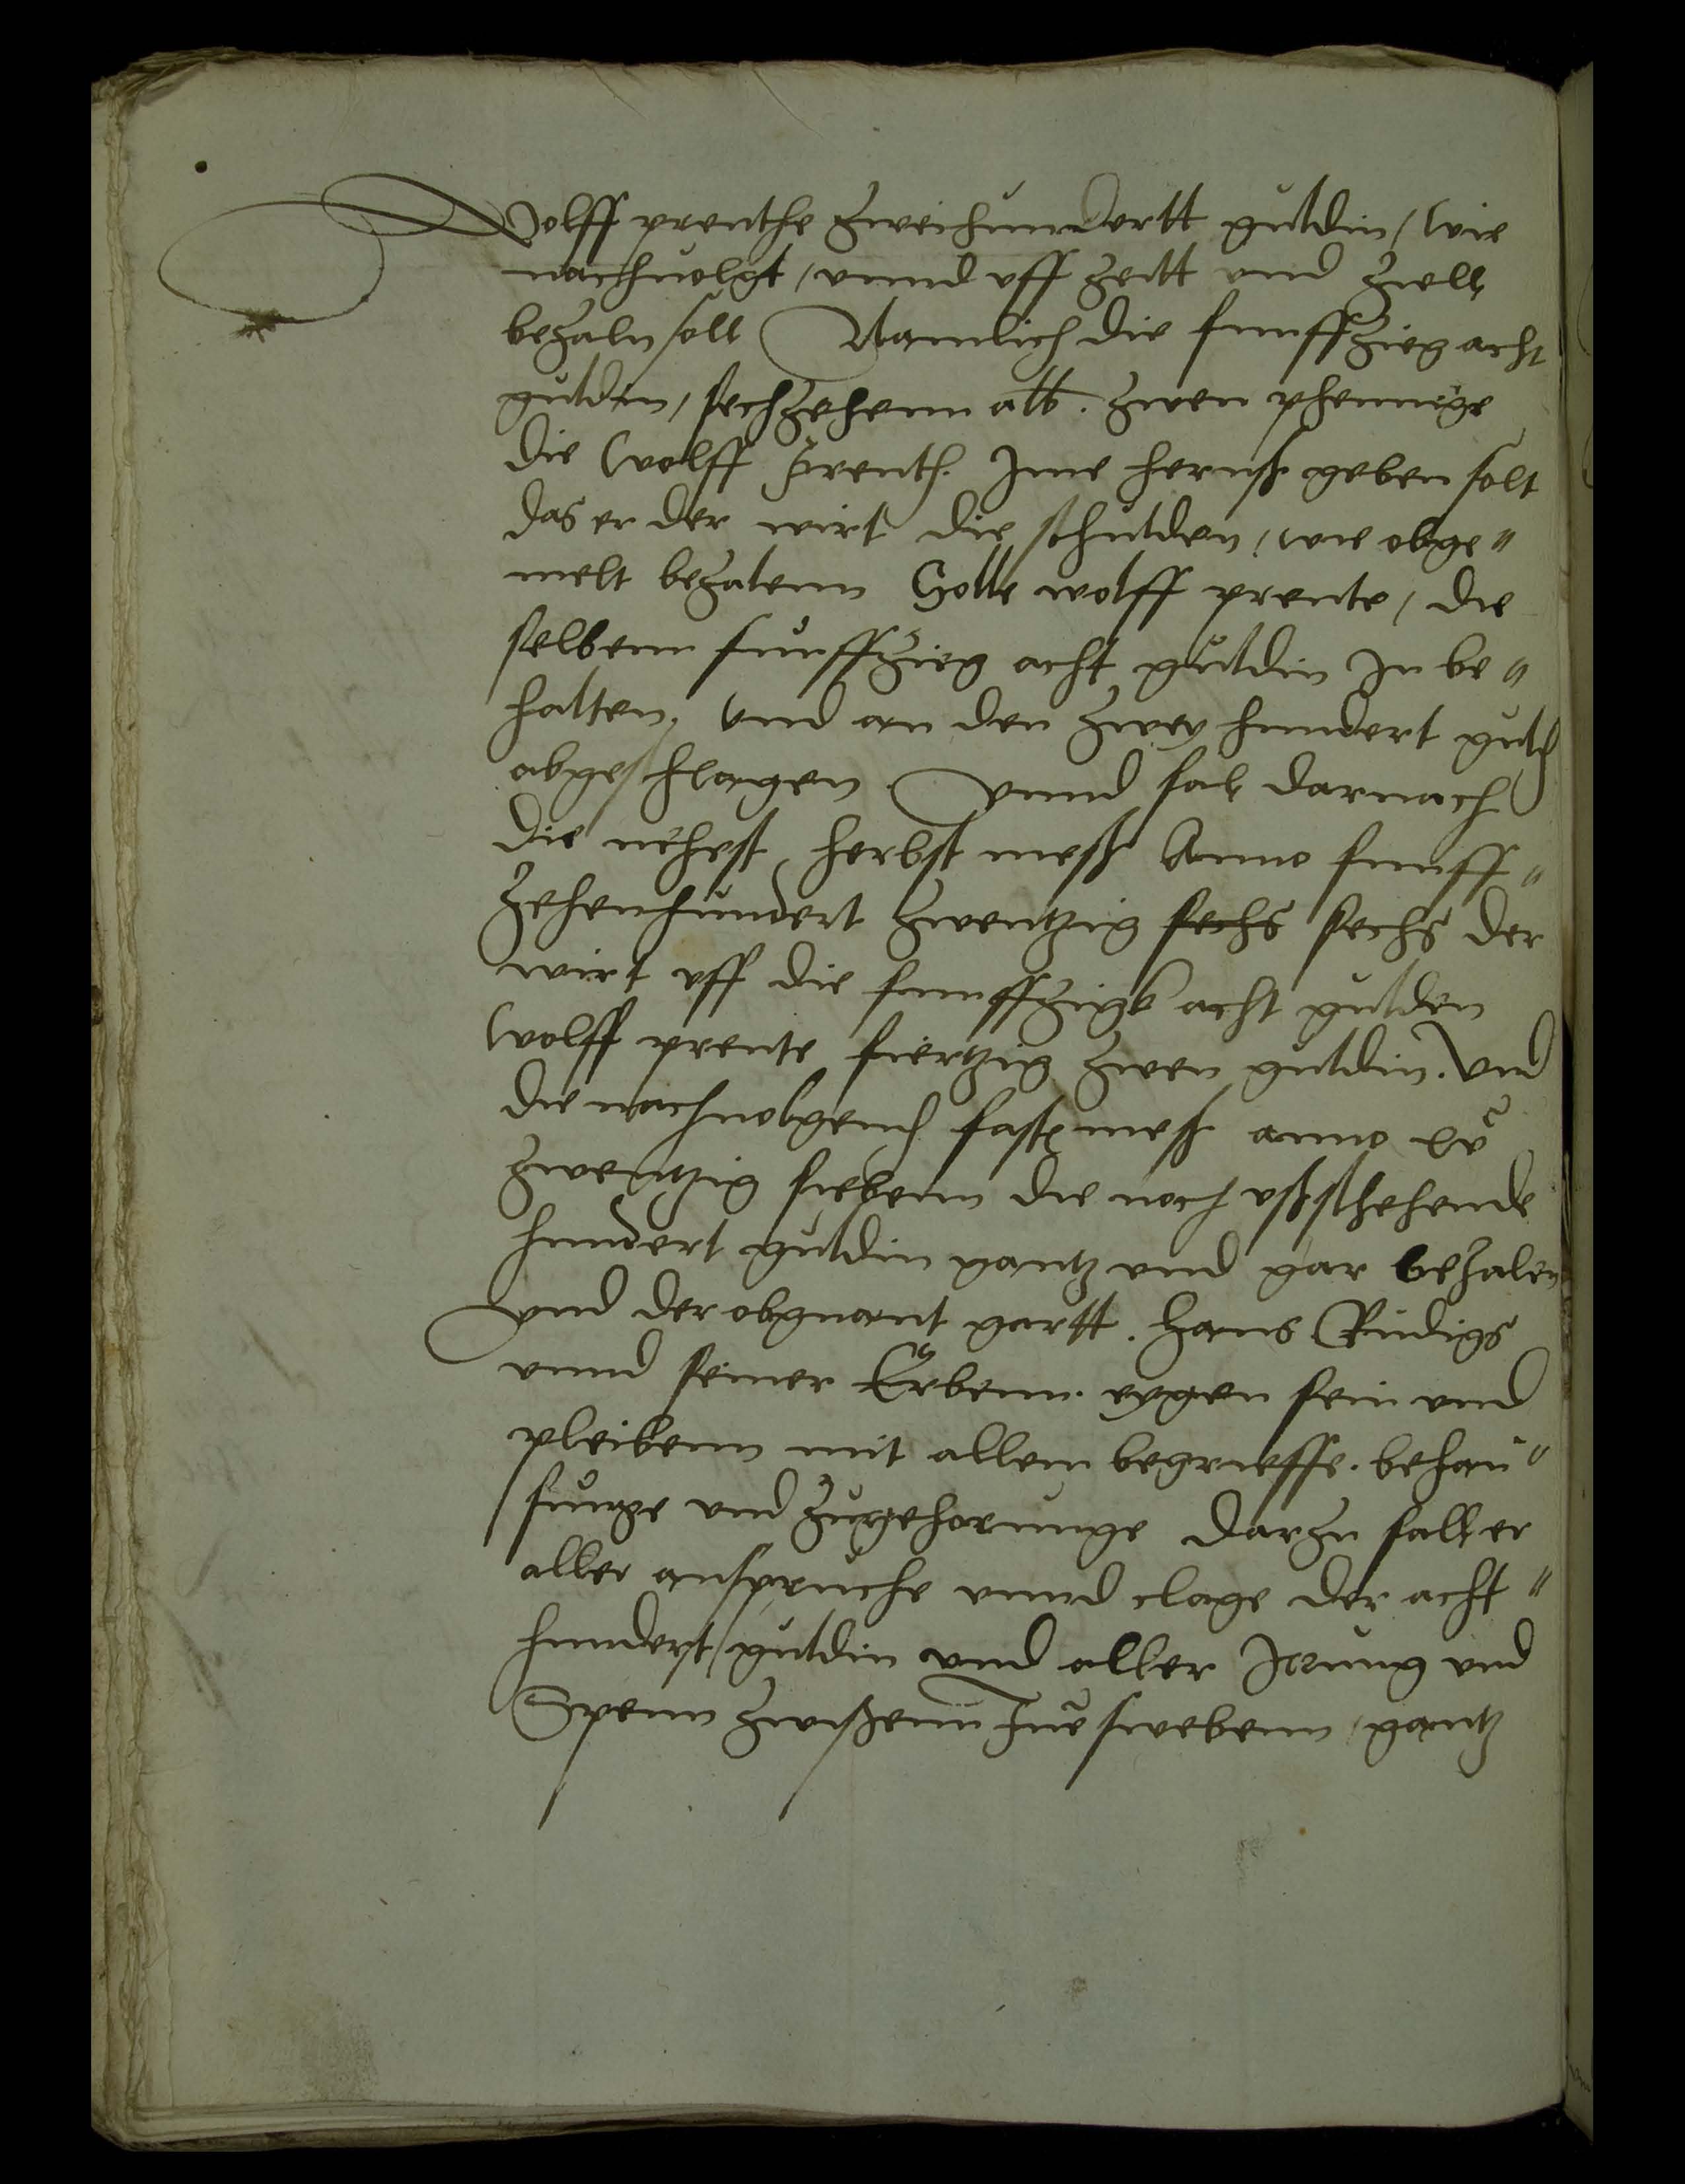 Wolff prenthe zweihundertt guldin / wie
nachuolgt / vnnd vff zeitt vnd ziell
bezaln soll Nemlich die funffzig acht
guldin / sechzehenn alb. zwen phennige
die Wolff prenth Ime herauß geben solt
das er der wirt die schulden / wie obge"
melt bezalenn Solle wolff prente / die
selbenn funffzig acht guldin In be"
halten vnd an den zwey hundert guld
abgeschlagen vnnd sol darnach
die nehest herbst meß Anno funff"
zehenhundert zwentzig sechs sechs der
wirt vff die funffzig acht gulden
Wolff prente fiertzig zwen guldin. Vnd
die nachgehend fastnmeß anno xvc
zwentzig sieben die noch vßstehende
hundert guldin gantz vnd gar bezalen
Vnd der obgnant gartt. Hans Rudigs
vnnd seiner Erbenn. eygen sein vnd
pleibenn mit allem begrieffe. behau"
sunge vnd zugehorunge Darzu soll er
aller anspruche vnnd clage der acht"
hundert guldin vnd aller Irrung vnd
Spenn zwischenn Inen gewesenn / gantz